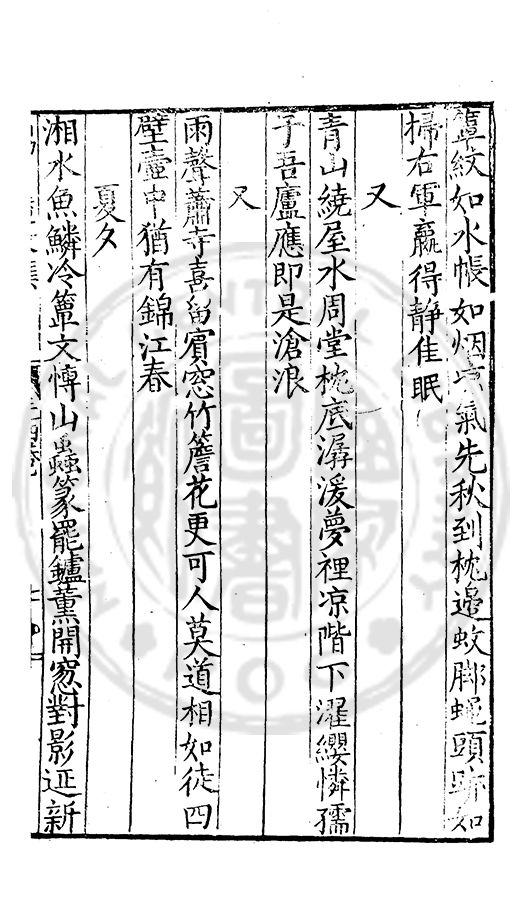 簟紋如水帳如烟凉氣先秋到枕邊蚊脚蠅頭跡如
掃右軍贏得靜佳眠
又
青山繞屋水周堂枕底潺湲夢裡凉階下濯纓憐孺
子吾廬應即是滄浪
又
雨聲蕭寺喜留賓窓竹簷花更可人莫道相如徒四
壁壷中猶有錦江春
夏夕
湘水魚鱗冷簟文愽山蟲篆罷鑪薰開窓對影逛新